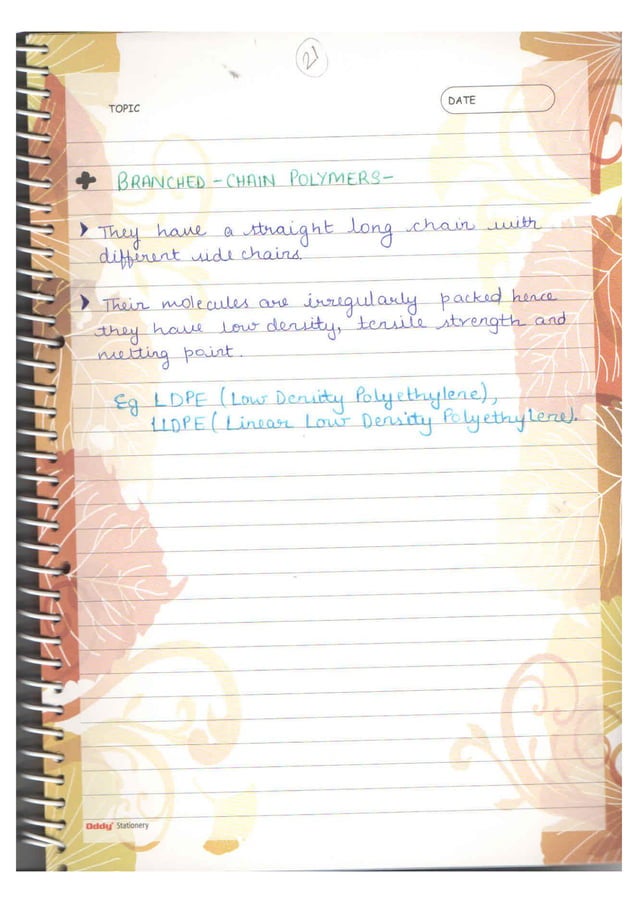 21
TOPIC
DATE
BRANCHED - CHAIN POLYMERS-
They have a straight long chain with
different side chains.
Their molecules are irregularly packed hence
they have low density, tensile strength and
melting point.
Eg LDPE (Low Density Polyethylene),
LLDPE (Linear Low Density Polyethylene).
Oddy Stationery